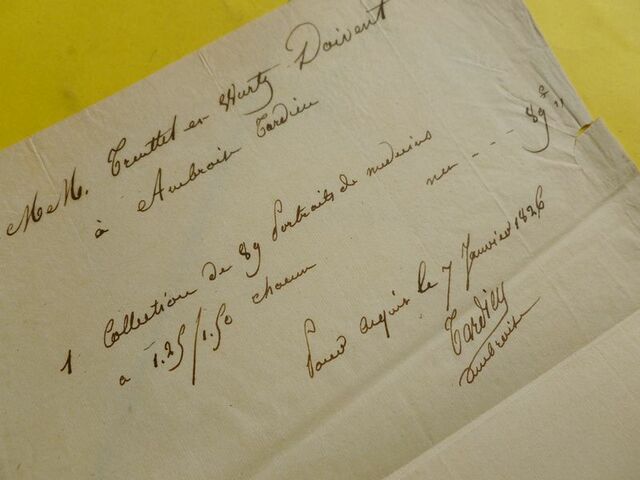 MM. Treuttel et Wurtz Doivent
à Ambroise Tardieu
1 Collection de 89 Portraits de medecins
a 1.25/1.50 chacun net - - - 89f "
Pour acquit le 7 Janvier 1826
Tardieu
Ambroise